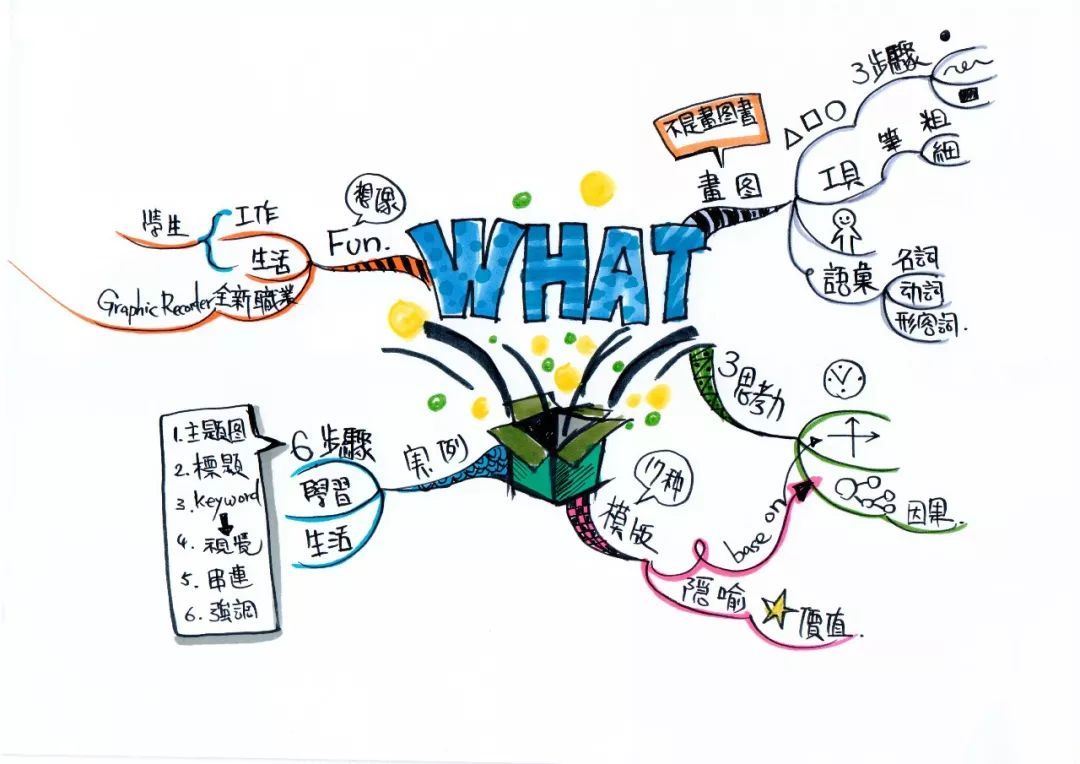 WHAT
不是畫图書
畫图
3步驟
工具
筆
粗
細
語彙
名詞
动詞
形容詞.
3思考力
因果.
17种
模版
base on
隱喻
價值.
実例
6步驟
學習
生活
1.主題图
2.標題
3.keyword
4.視覺
5.串連
6.強調
想像
Fun.
工作
學生
生活
Graphic Recorder全新職業